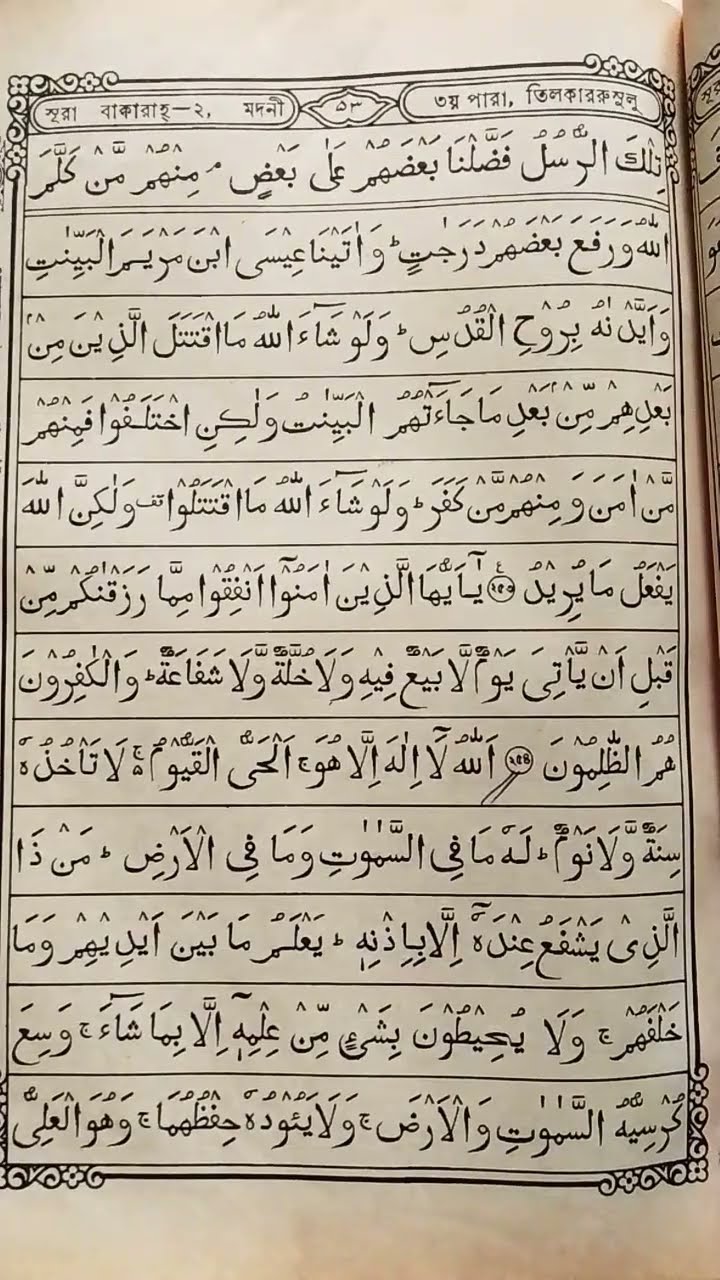 সূরা বাকারাহ্—২, মদনী ৫৩ ৩য় পারা, তিলকাররুসুলু
تِلْكَ الرُّسُلُ فَضَّلْنَا بَعْضَهُمْ عَلٰى بَعْضٍ ۘ مِنْهُمْ مَّنْ كَلَّمَ
اللّٰهُ وَرَفَعَ بَعْضَهُمْ دَرَجٰتٍ ؕ وَاٰتَيْنَا عِيْسَى ابْنَ مَرْيَمَ الْبَيِّنٰتِ
وَاَيَّدْنٰهُ بِرُوْحِ الْقُدُسِ ؕ وَلَوْ شَآءَ اللّٰهُ مَا اقْتَتَلَ الَّذِيْنَ مِنْۢ
بَعْدِهِمْ مِّنْۢ بَعْدِ مَا جَآءَتْهُمُ الْبَيِّنٰتُ وَلٰكِنِ اخْتَلَفُوْا فَمِنْهُمْ
مَّنْ اٰمَنَ وَمِنْهُمْ مَّنْ كَفَرَ ؕ وَلَوْ شَآءَ اللّٰهُ مَا اقْتَتَلُوْا قف وَلٰكِنَّ اللّٰهَ
يَفْعَلُ مَا يُرِيْدُ ﴿২৫৩﴾ يٰۤاَيُّهَا الَّذِيْنَ اٰمَنُوْۤا اَنْفِقُوْا مِمَّا رَزَقْنٰكُمْ مِّنْ
قَبْلِ اَنْ يَّاْتِىَ يَوْمٌ لَّا بَيْعٌ فِيْهِ وَلَا خُلَّةٌ وَّلَا شَفَاعَةٌ ؕ وَالْكٰفِرُوْنَ
هُمُ الظّٰلِمُوْنَ ﴿২৫৪﴾ اَللّٰهُ لَاۤ اِلٰهَ اِلَّا هُوَ ۚ اَلْحَىُّ الْقَيُّوْمُ ۚ لَا تَاْخُذُهٗ
سِنَةٌ وَّلَا نَوْمٌ ؕ لَهٗ مَا فِى السَّمٰوٰتِ وَمَا فِى الْاَرْضِ ؕ مَنْ ذَا
الَّذِىْ يَشْفَعُ عِنْدَهٗۤ اِلَّا بِاِذْنِهٖ ؕ يَعْلَمُ مَا بَيْنَ اَيْدِيْهِمْ وَمَا
خَلْفَهُمْ ۚ وَلَا يُحِيْطُوْنَ بِشَىْءٍ مِّنْ عِلْمِهٖۤ اِلَّا بِمَا شَآءَ ۚ وَسِعَ
كُرْسِيُّهُ السَّمٰوٰتِ وَالْاَرْضَ ۚ وَلَا يَـُٔوْدُهٗ حِفْظُهُمَا ۚ وَهُوَ الْعَلِىُّ